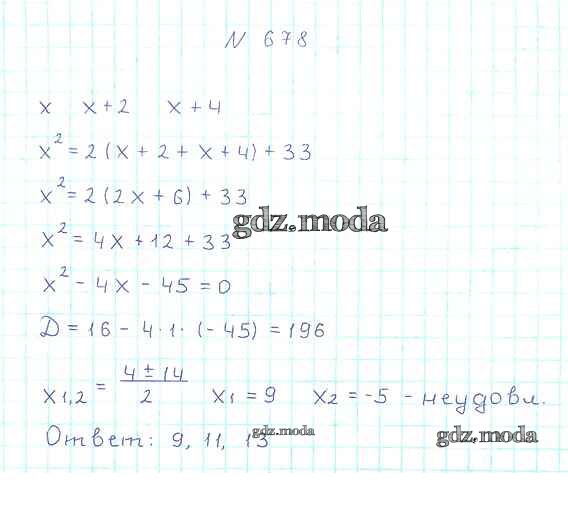 N 678
x   x+2   x+4
x² = 2(x + 2 + x + 4) + 33
x² = 2(2x + 6) + 33
gdz.moda
x² = 4x + 12 + 33
x² - 4x - 45 = 0
D = 16 - 4·1·(-45) = 196
x1,2 = (4 ± 14)/2   x1 = 9   x2 = -5 - неудовл.
Ответ: 9, 11, 13
gdz.moda
gdz.moda